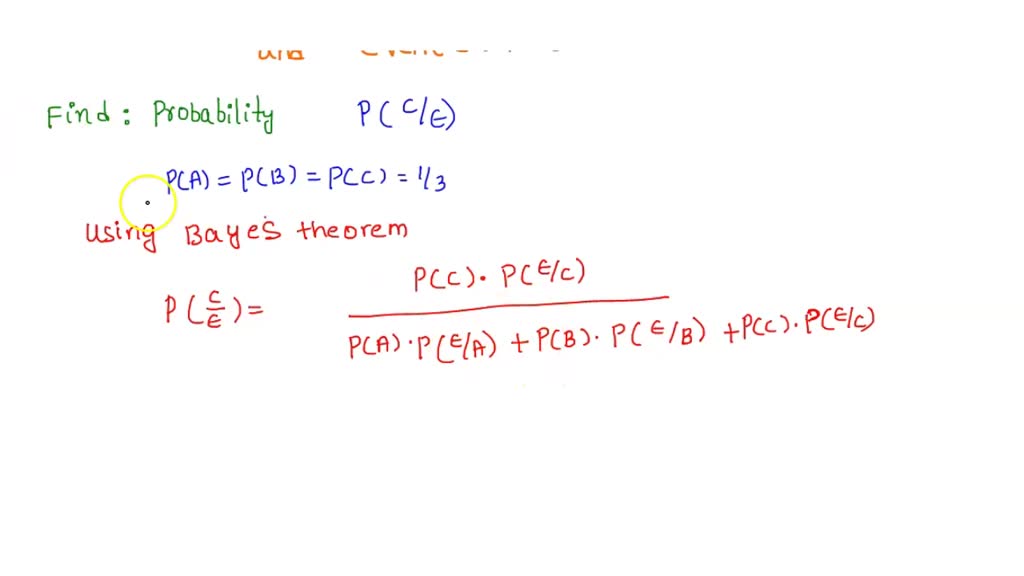 and
Find: Probability P(C/E)
P(A) = P(B) = P(C) = 1/3
Using Baye's theorem
P(C/E) = P(C)·P(E/C)
P(A)·P(E/A) + P(B)·P(E/B) + P(C)·P(E/C)